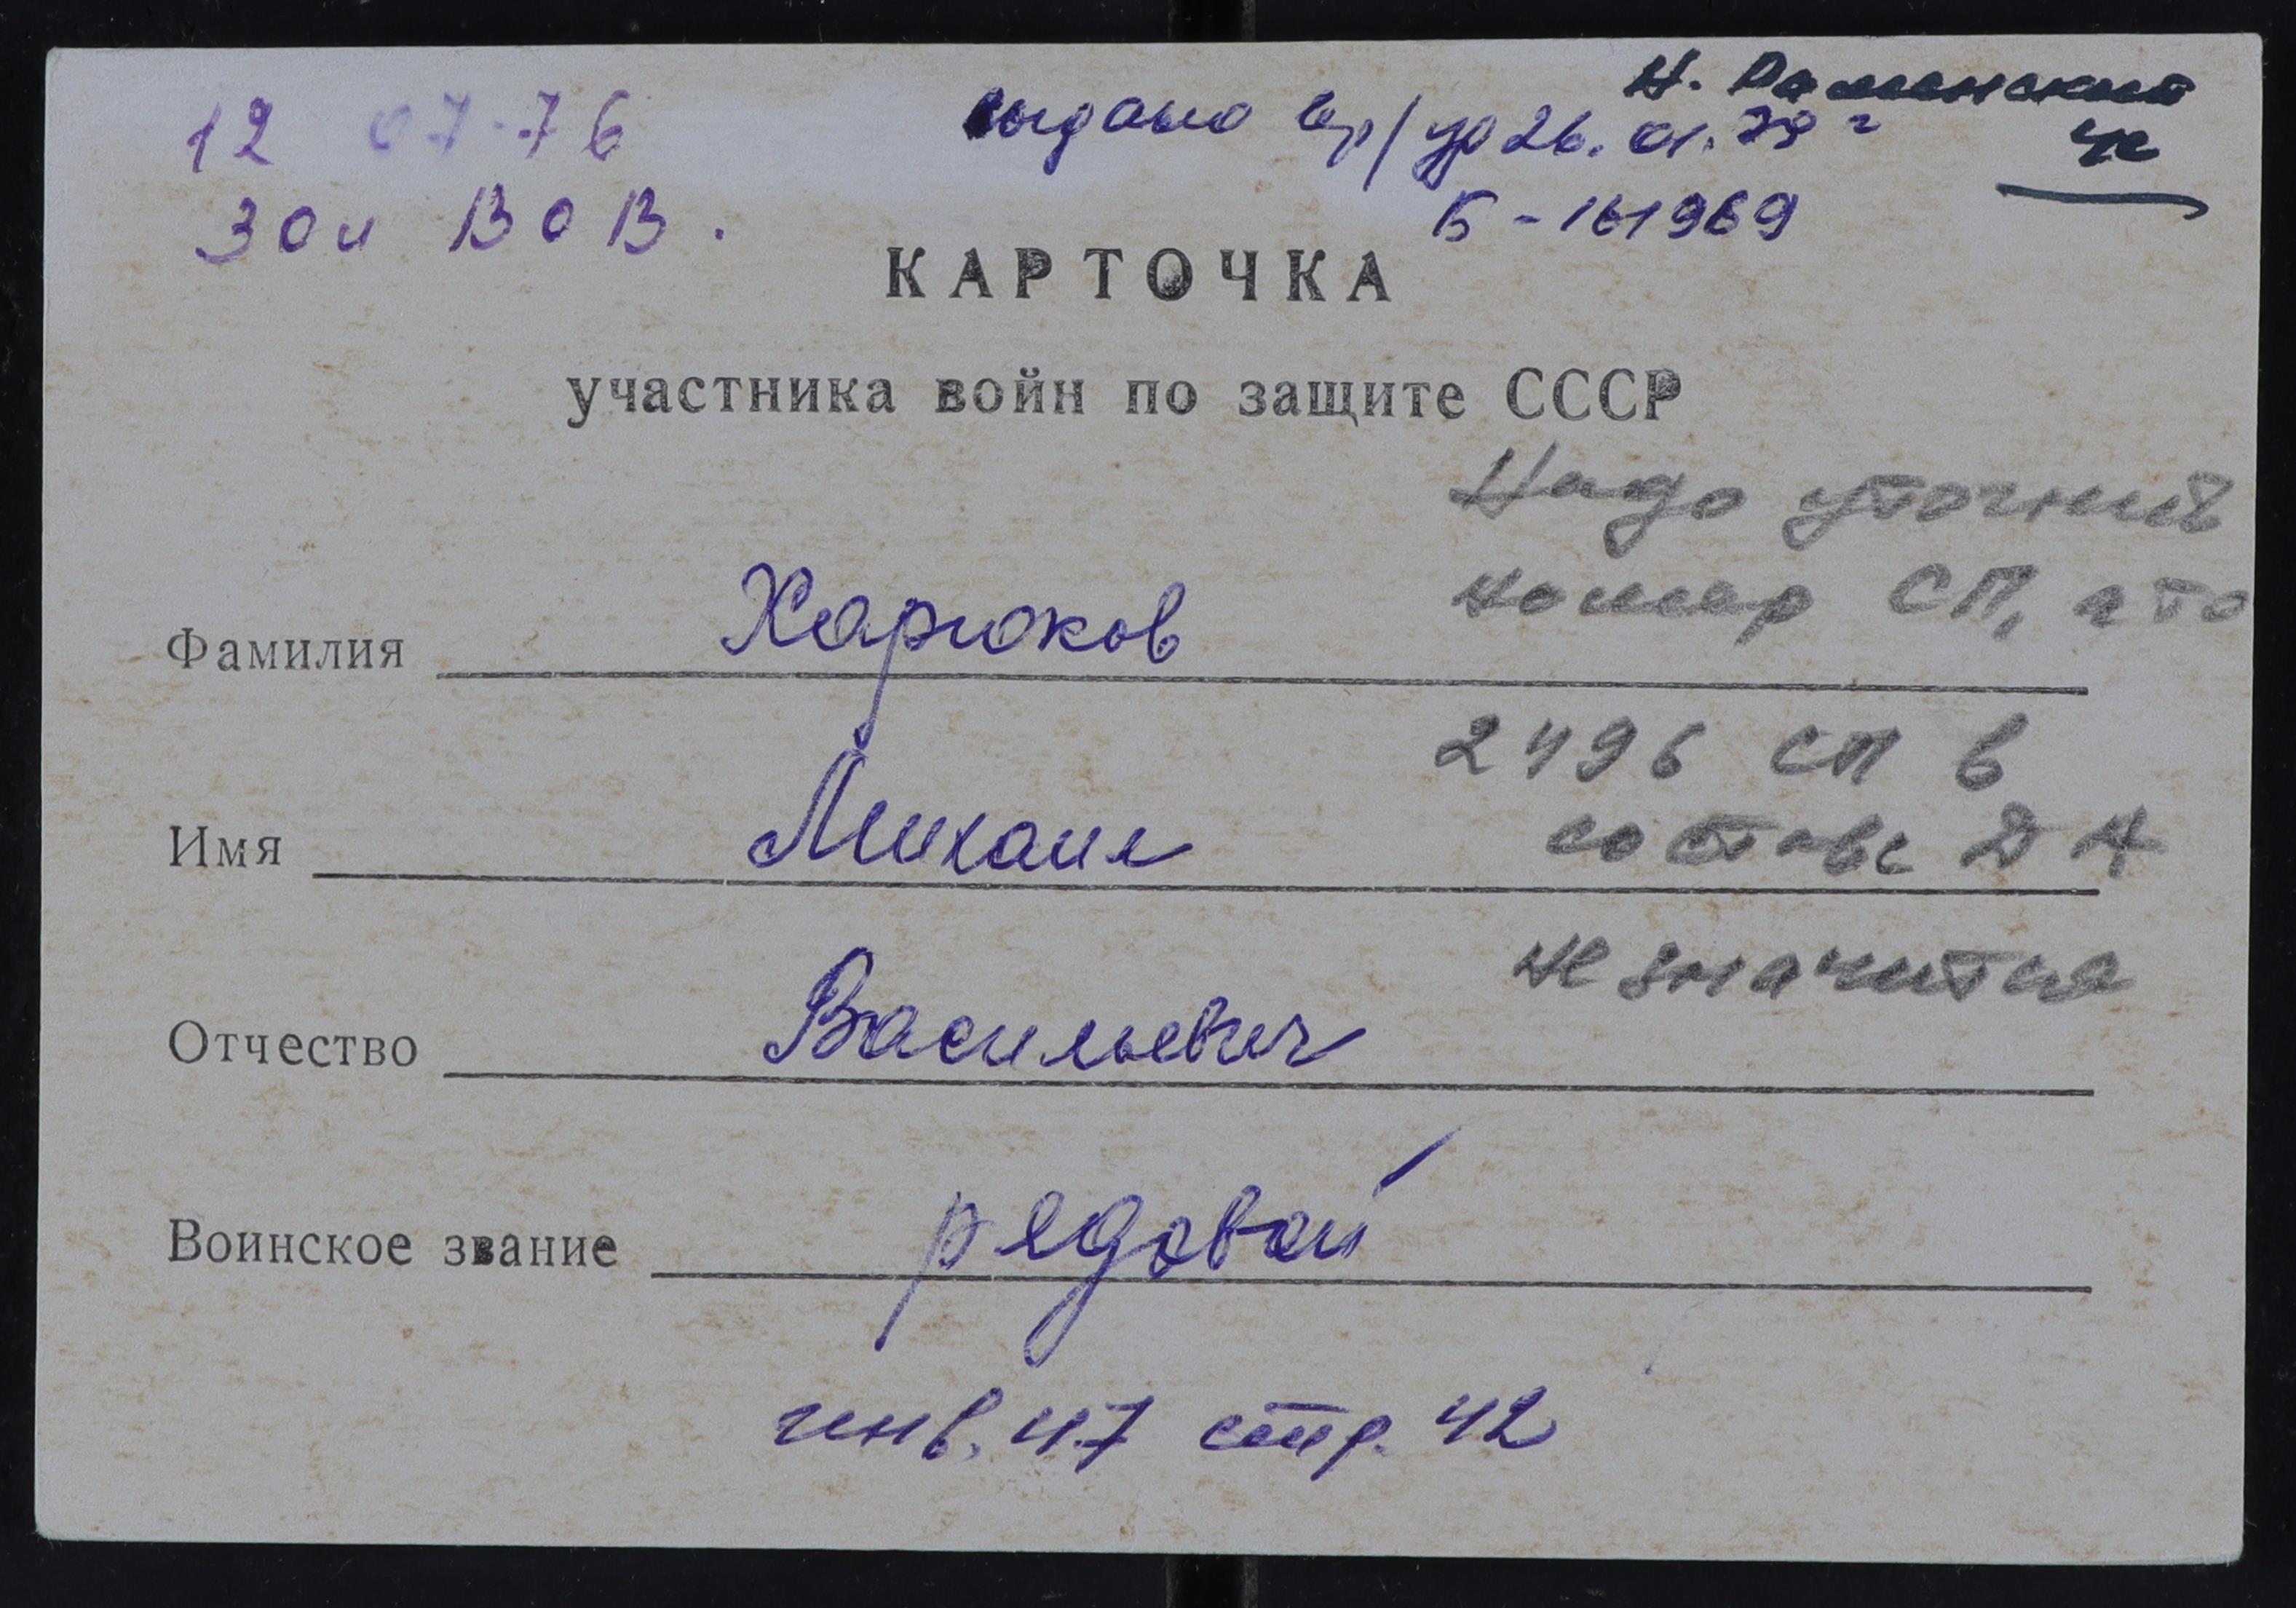 Н. Раменский
12 07-76
выдано 26.01.79 г
Зои ВОВ.
Б-161969
КАРТОЧКА
участника войн по защите СССР
Надо уточнить
номер СП, что
Фамилия Харюков
2496 СП в
составе ДА
Имя Михаил
не значится
Отчество Васильевич
Воинское звание рядовой
инв. 47 стр. 42